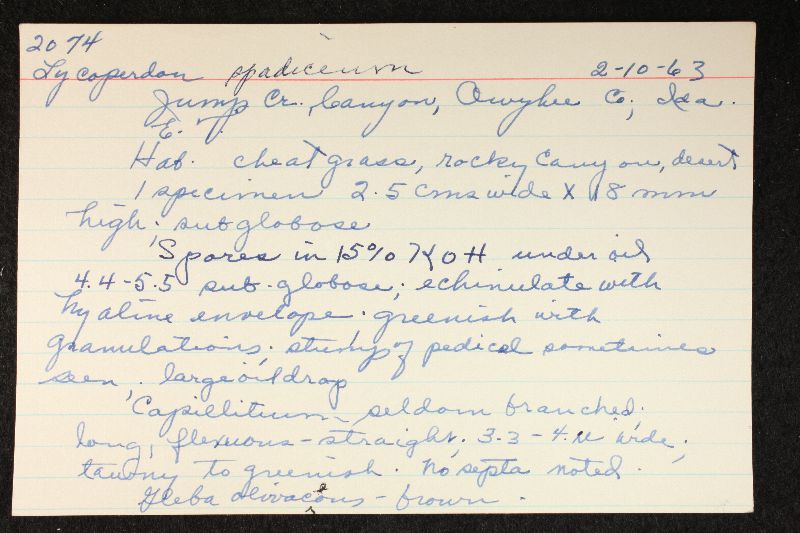 2074
Lycoperdon spadiceum 2-10-63
Jump Cr. Canyon, Owyhee Co; Ida.
E.
Hab. cheat grass, rocky Canyon, desert
1 specimen 2.5 cms wide X 18 mm
high. subglobose
Spores in 15% KOH under oil
4.4-5.5 sub-globose; echinulate with
hyaline envelope; greenish with
granulations; stump of pedicel sometimes
seen; large oil drop
Capillitium seldom branched;
long, flexuous - straight. 3.3-4.µ wide;
tawny to greenish. No septa noted.
Gleba olivaceous - brown.